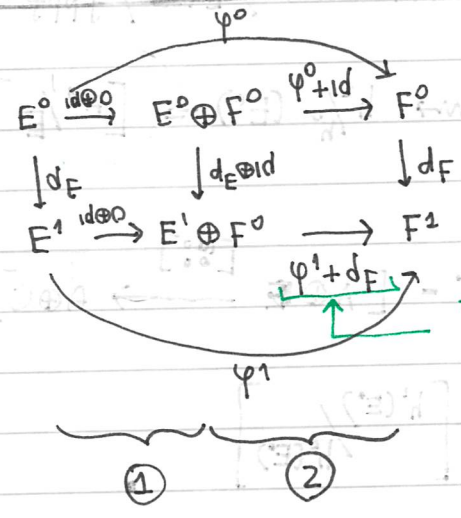 φ⁰
E⁰ id⊕0 E⁰⊕F⁰ φ⁰+id F⁰
d_E d_E⊕id d_F
E¹ id⊕0 E¹⊕F⁰ F¹
φ¹+d_F
φ1
① ②